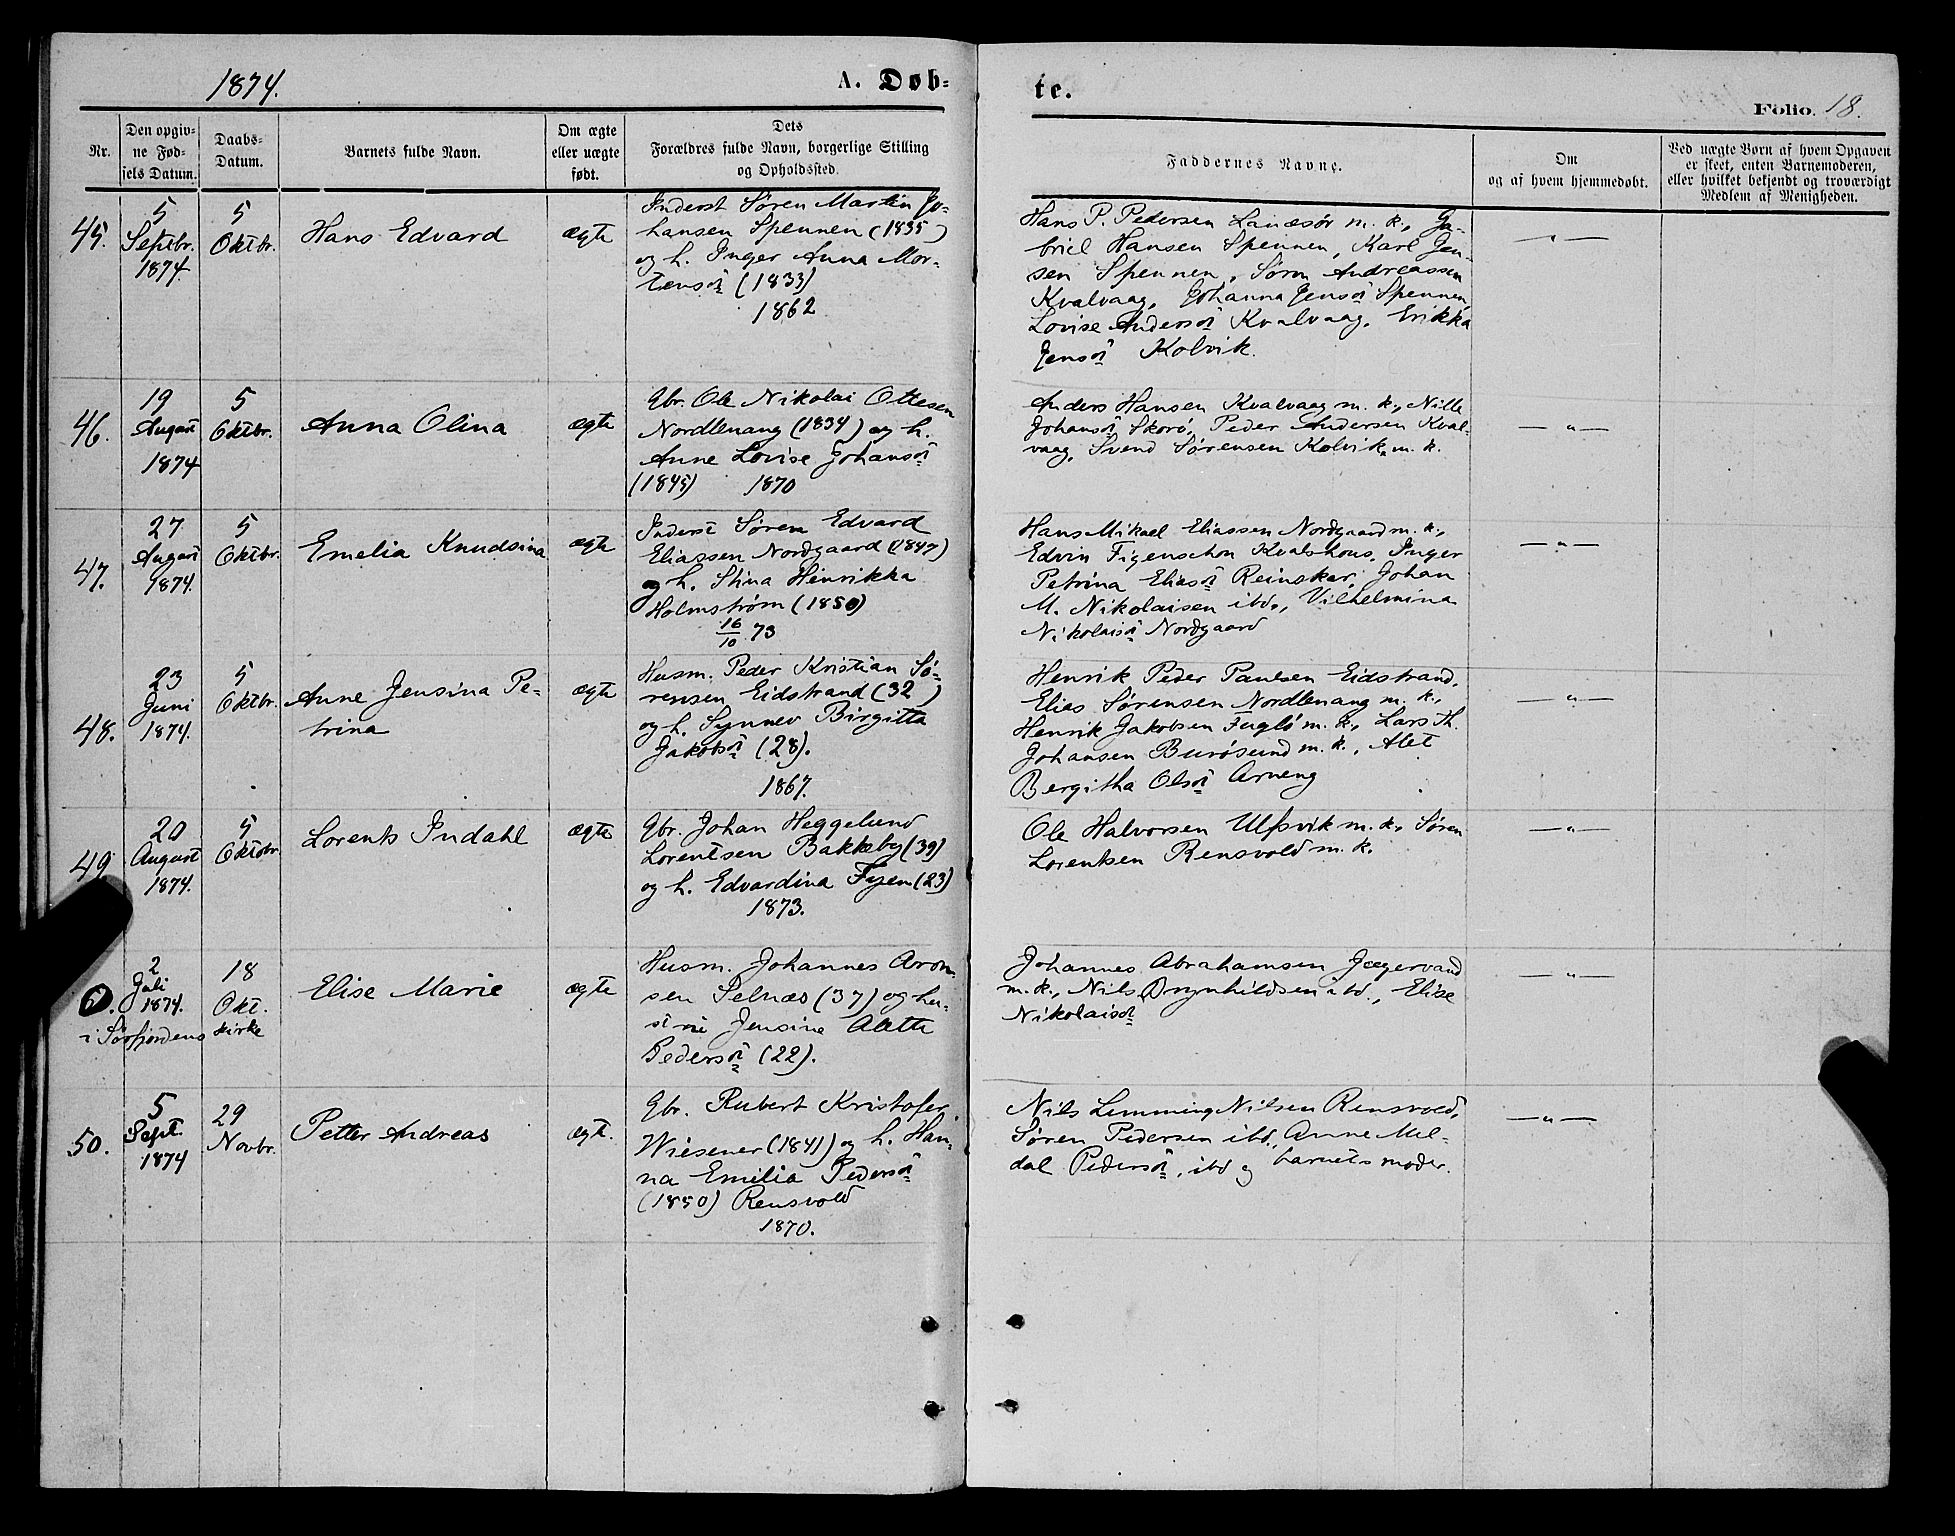 1874.
A. Døb-
te.
Folio. 18.
Nr.
Den opgiv-
ne Fød-
sels Datum.
Daabs-
Datum.
Barnets fulde Navn.
Om ægte
eller uægte
født.
Dets
Forældres fulde Navn, borgerlige Stilling
og Opholdssted.
Faddernes Navne.
Om
og af hvem hjemmedøbt.
Ved uægte Børn af hvem Opgaven
er skeet, enten Barnemoderen,
eller hvilket bekjendt og troværdigt
Medlem af Menigheden.
45.
5
Septbr.
1874.
5
Oktbr.
Hans Edvard
ægte
Inderst Søren Martin Jo-
hansen Spennen (1835)
og h. Inger Anna Mor-
tensdr (1833)
1862
Hans P. Pedersen Lanæsør m. k., Ga-
briel Hansen Spennen, Karl Jen-
sen Spennen, Søren Andreassen
Kvalvaag, Johanna Jensdr Spennen,
Lovise Andersdr Kvalvaag, Erikka
Jensdr Kolvik.
— " —
46.
19
August
1874
5
Oktbr.
Anna Olina
ægte
Gbr. Ole Nikolai Ottesen
Nordlenang (1834) og h.
Anne Lovise Johansdr
(1845) 1870
Anders Hansen Kvalvaag m. k., Nille
Johansdr Skorø, Peder Andersen Kval-
vaag, Svend Sørensen Kolvik m. k.
— " —
47.
27
August
1874.
5
Oktbr.
Emelia Knudsina
ægte
Inderst Søren Edvard
Eliassen Nordgaard (1847)
og h. Stina Henrikka
Holmstrøm (1850)
16/10 73
Hans Mikael Eliassen Nordgaard m. k.,
Edvin Figenschou Kvalshous, Inger
Petrina Eliasdr Reinskar, Johan
M. Nikolaisen ibd., Vilhelmina
Nikolaisdr Nordgaard
— " —
48.
23
Juni
1874.
5
Oktbr.
Anne Jensina Pe-
trina
ægte
Husm. Peder Kristian Sø-
rensen Eidstrand (32)
og h. Synnev Birgitta
Jakobsdr (28).
1867.
Henrik Peder Paulsen Eidstrand,
Elias Sørensen Nordlenang m. k.,
Henrik Jakobsen Fuglø m. k., Lars Th.
Johansen Burøsund m. k., Alet
Bergitha Olsdr Arneng
— " —
49
20
August
1874.
5
Oktobr.
Lorents Indahl
ægte
Gbr. Johan Heggelund
Lorentsen Bakkeby (39)
og h. Edvardina Fyen (23)
1873.
Ole Halvorsen Ulfsvik m. k., Søren
Lorentsen Rensvold m. k.
— " —
2
Juli
1874.
18
Okt.
i Sørfjordens kirke
Elise Marie
ægte
Husm. Johannes Aron-
sen Selnæs (37) og hu-
stru Jensine Alette
Pedersdr (22).
Johannes Abrahamsen Jægervand
m. k., Nils Brynhildsen ibd., Elise
Nikolaisdr
— " —
50.
5
Sept.
1874
29
Novbr.
Petter Andreas
ægt.
Gbr. Rubert Kristofer
Wiesener (1841) og h. Han-
na Emilia Pedersdr
(1850) Rensvold
1870.
Nils Lemming Nilsen Rensvold,
Søren Pedersen ibd., Anne Mel-
dal Pedersdr, ibd og barnets moder.
— " —